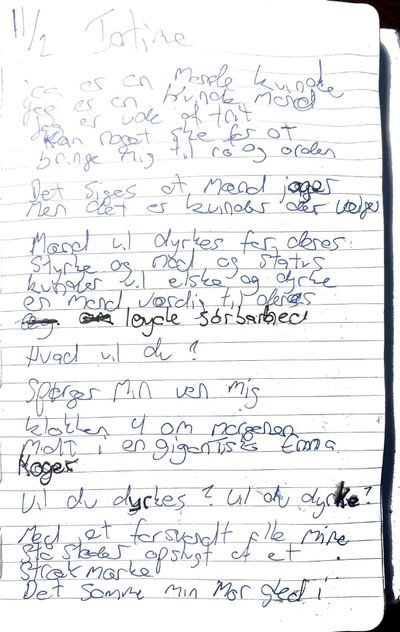 11/2
jeg er en Mande kvinde
jeg er en kvinde Mand
jeg er ude af trit
Kan noget ske for at
bringe mig til ro og orden
Det siges at Mænd jager
Men det er kvinder der vælger
Mænd vil dyrkes for deres
Styrke og mod og status
kvinder vil elske og dyrke
en Mand værdig til deres
sårbarhed
Hvad vil du?
Spørger Min ven mig
klokken 4 om morgenen
Midt i en gigantisk Emma
Koger
Vil du dyrkes? Vil du dyrke?
Med et forsvandt alle mine
Ståsteder opslugt af et
Stræk mærke
Det Samme min Mor gled i